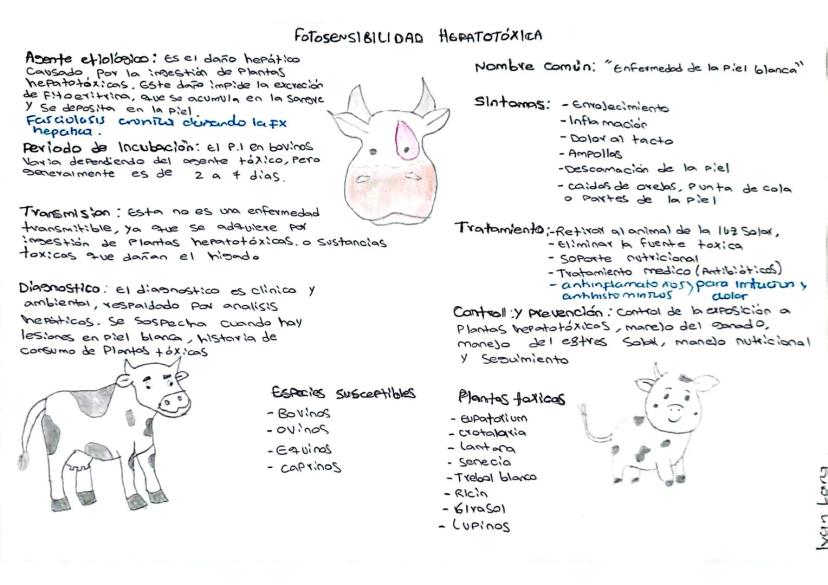 FOTOSENSIBILIDAD HEPATOTÓXICA
Agente etiológico: Es el daño hepático
causado, por la ingestión de plantas
hepatotóxicas. Este daño impide la excreción
de Fitoeritrina, que se acumula en la sangre
y se deposita en la piel.
Fasciolosis cronica
hepatica.
Periodo de Incubación: El P.I en bovinos
varia dependiendo del agente tóxico, pero
generalmente es de 2 a 7 días.
Transmision: Esta no es una enfermedad
transmitible, ya que se adquiere por
ingestión de plantas hepatotóxicas. o sustancias
toxicas que dañan el higado
Diagnostico: El diagnostico es clinico y
ambiental, respaldado por analisis
hepáticos. Se sospecha cuando hay
lesiones en piel blanca, historia de
consumo de plantas tóxicas
Nombre común: "Enfermedad de la piel blanca"
Sintomas: - Enrojecimiento
- Inflamación
- Dolor al tacto
- Ampollas
- Descamación de la piel
- caidas de orejas, punta de cola
o partes de la piel
Tratamiento:- Retirar al animal de la luz solar,
- Eliminar la fuente toxica
- Soporte nutricional
- Tratamiento medico (Antibióticos)
- antiinflamatorios para y
dolor
Control y prevención: Control de la exposición a
plantas hepatotóxicas, manejo del ganado,
manejo del estres solar, manejo nutricional
y seguimiento
Especies susceptibles
- Bovinos
- Ovinos
- Equinos
- caprinos
Plantas toxicas
- Eupatorium
- crotalaria
- Lantana
- Senecio
- Trebol blanco
- Ricin
- Girasol
- Lupinos
Ivan